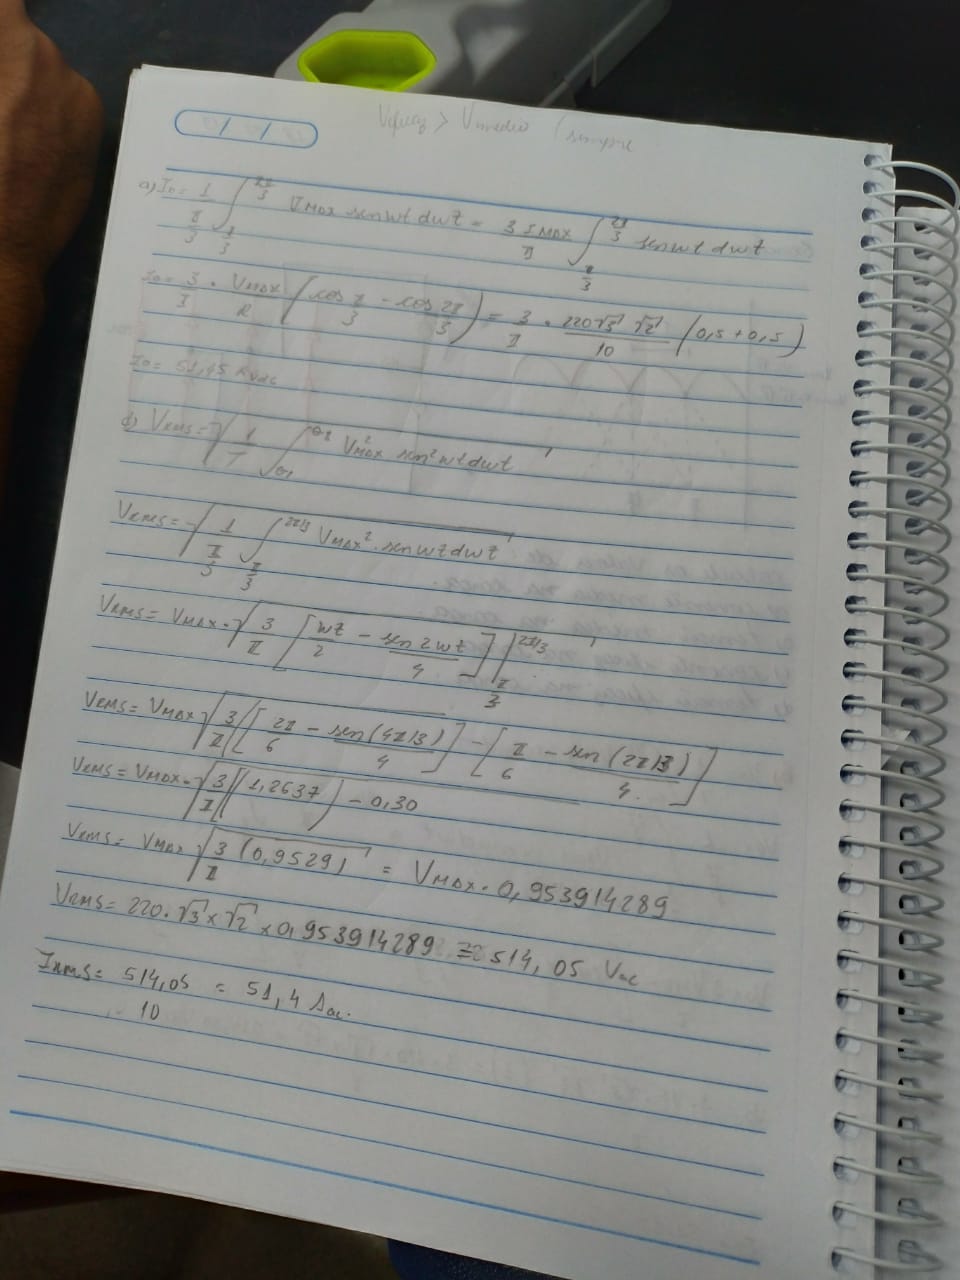 Veficaz > Vmedio (sempre
a) Io = 1/(π/3) ∫_{π/3}^{2π/3} VMAX senwt dwt = 3 IMAX/π ∫_{π/3}^{2π/3} senwt dwt
Io = 3/π · VMAX/R (cos π/3 - cos 2π/3) = 3/π · 220√3 √2/10 (0,5 + 0,5)
Io = 51,45 AVdc
d) VRMS = √(1/T ∫_{θ1}^{θ2} V²MAX sen² wt dwt)
VRMS = √(1/(π/3) ∫_{π/3}^{2π/3} VMAX² · senwt dwt)
VRMS = VMAX · √(3/π [wt/2 - sen 2wt/4] |_{π/3}^{2π/3})
VRMS = VMAX √(3/π [2π/6 - sen(4π/3)/4] - [π/6 - sen(2π/3)/4])
VRMS = VMAX · √(3/π (1,2637) - 0,30
VRMS = VMAX √(3/π (0,9529)) = VMAX · 0,953914289
VRMS = 220 · √3 × √2 × 0,953914289 ≅ 514,05 Vac
IRMS = 514,05/10 = 51,4 Aac.